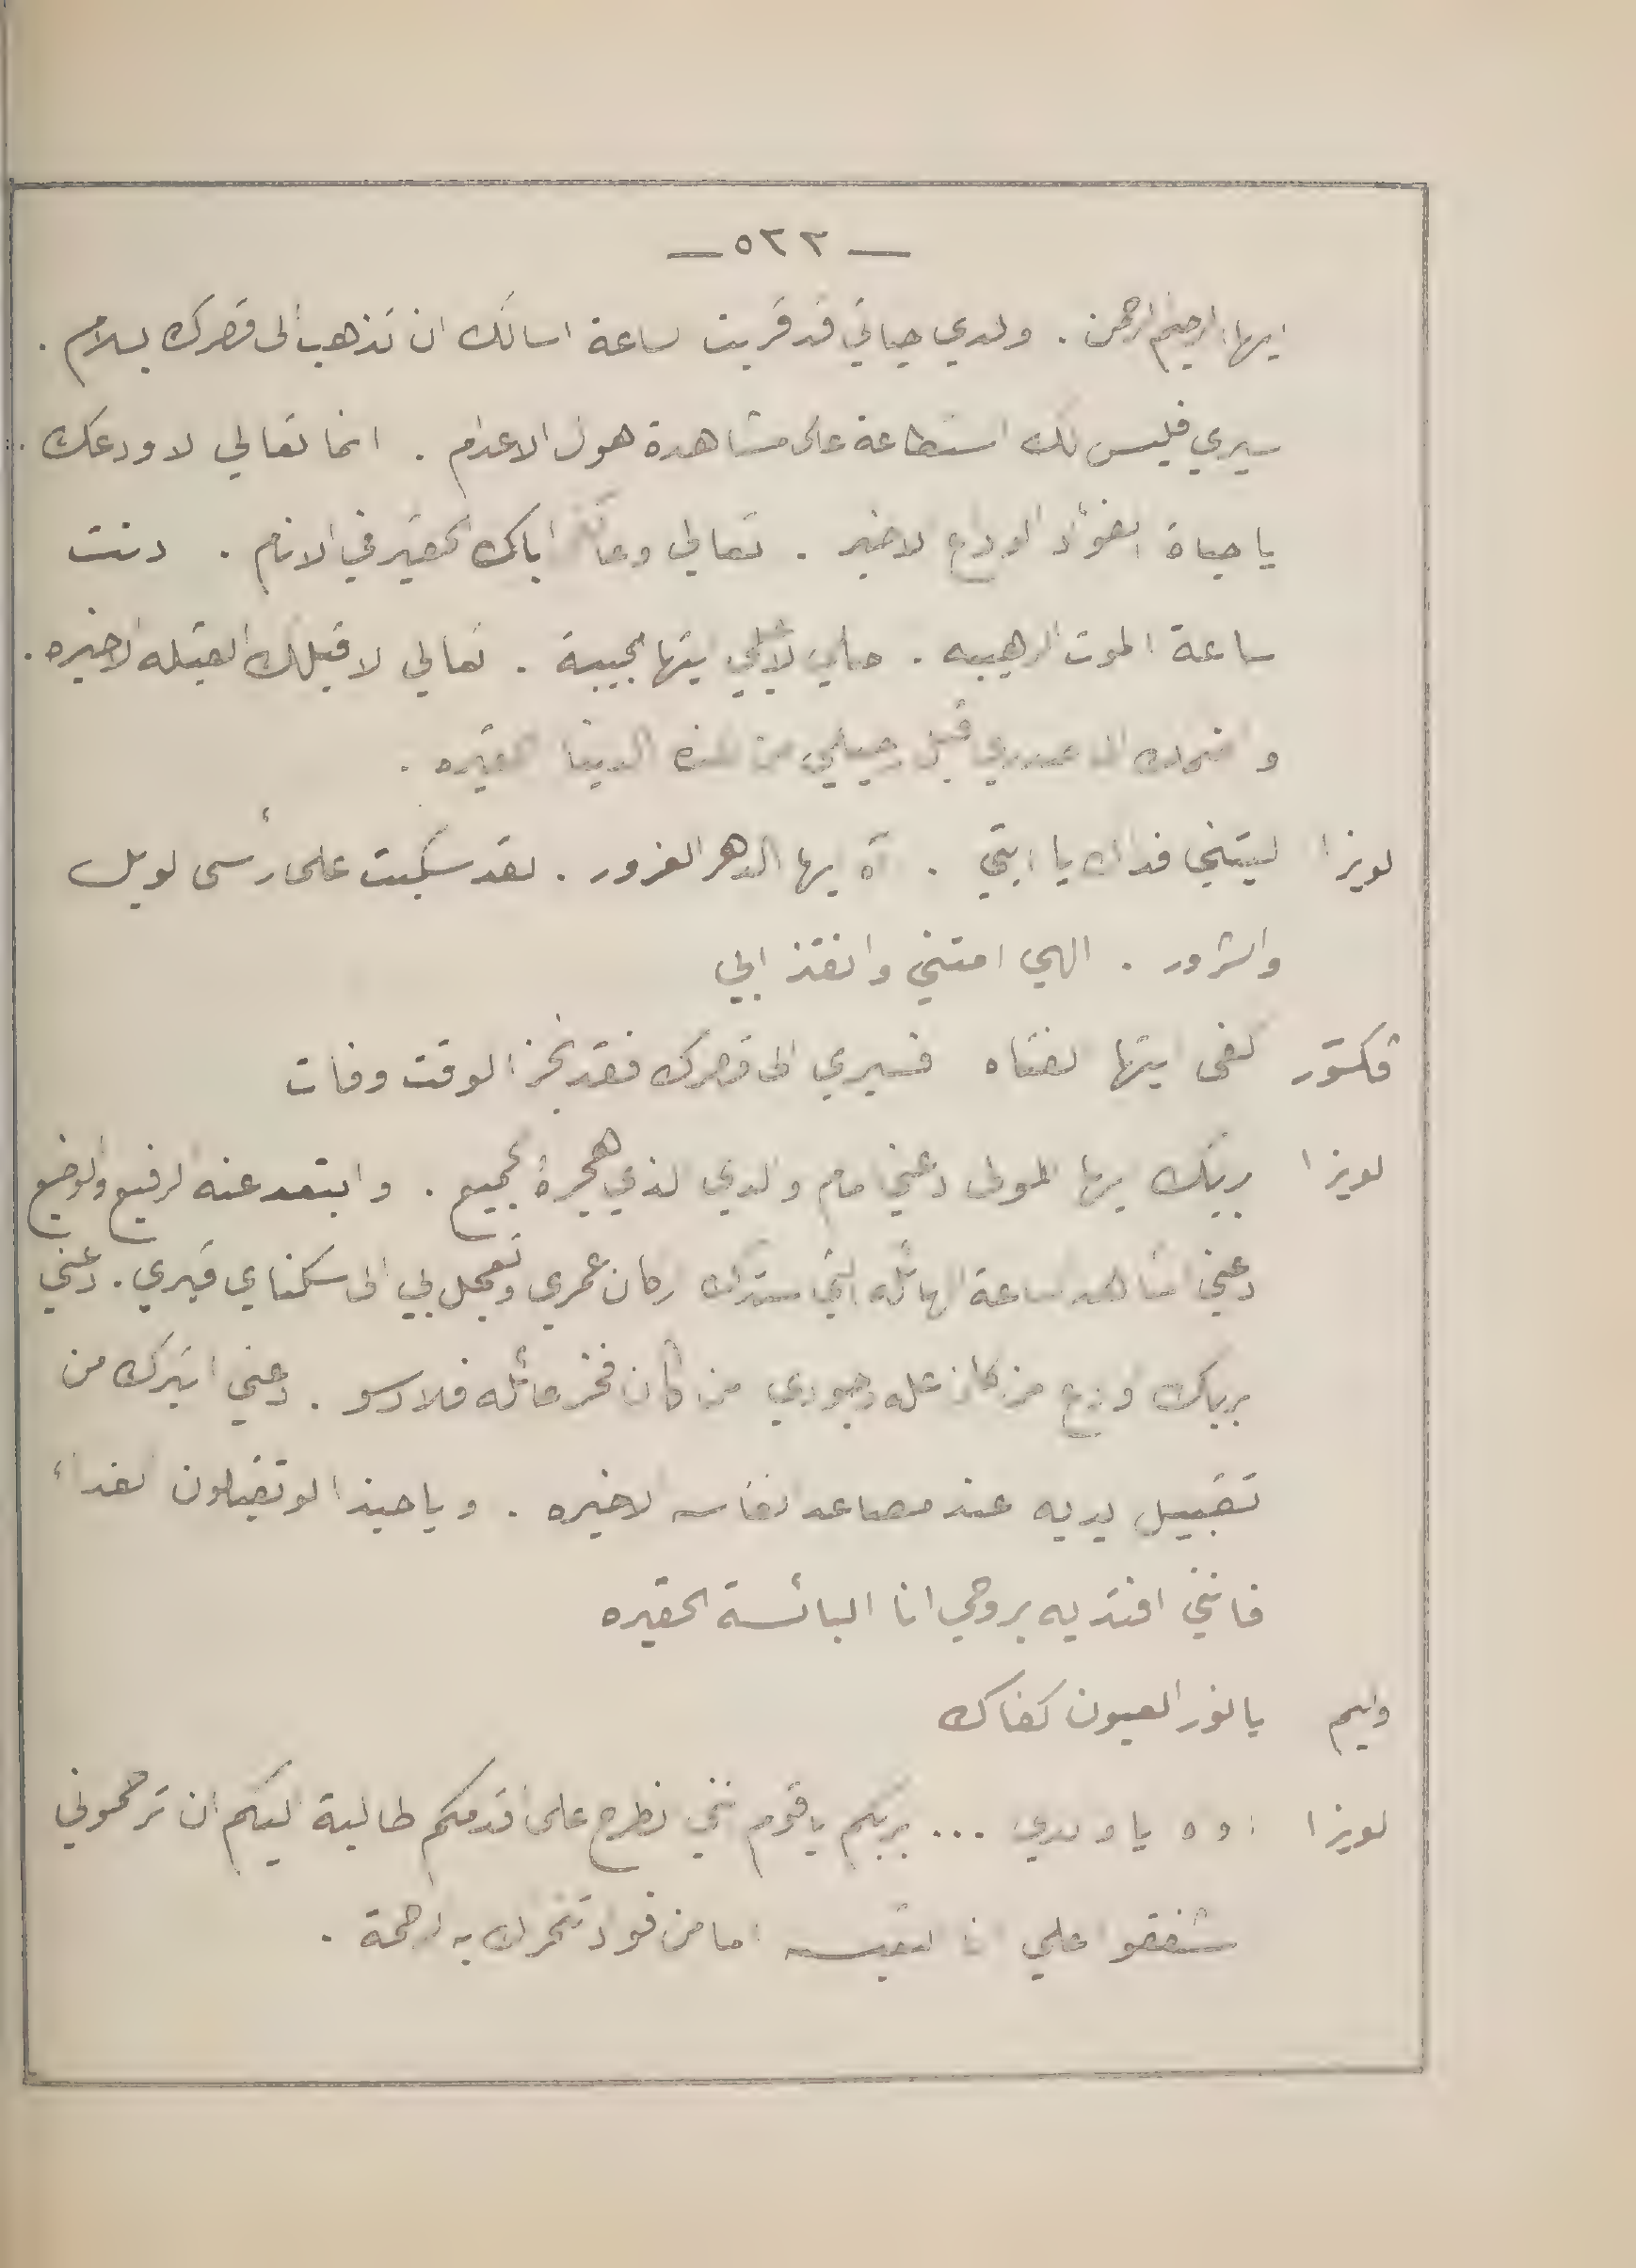 — ٥٣٣ —
ايها الرحيم الرحمن . ولدي حياتي قد قربت ساعة اسالك ان تذهب الى قصرك بسلام .
سيري فليس لك استطاعة على مشاهدة هول الاعدام . انما تعالي لاودعك .
يا حياة الفؤاد الوداع الاخير . تعالي اباك الحقير في الانام . دنت
ساعة الموت الرهيبه . ايتها الحبيبة . تعالي لاقبلك القبله الاخيره .
و الى صدري قبل رحيلي من هذه الدنيا الحقيره .
لويزا ليتني فداك يا ابتي . آه ايها الدهر الغرور . لقد سكبت على رأسى لويل
والشرور . الهي امتني وانقذ ابي
فكتور كفى ايتها لفتاه فسيري الى قصرك فقد نجز الوقت وفات
لويزا بربك ايها المولى دعني امام والدي لذي هجرهُ لجميع . وابتعد عنه الرفيع والوضيع
دعني اشاهد ساعة الهائله التي ستدك اركان عمري وتعجل بي الى سكناي قبري . دعني
بربك اودع من كان علة وجودي من كان فخر عائله فلادسو . دعني اتبرك من
تقبيل يديه عند مصاعد انفاسه لاخيره . وياحبذا لو تقبلون لفداء
فانني افتديه بروحي انا البائسة الحقيره
وليم يا نور العيون كفاك
لويزا اوه يا والدي ... بربكم يا قوم انني نطرح على اقدمكم طالبة ليكم ان ترحموني
شفقوا علي انا لتعيسه اما من فواد تتحرك به لرحمة .